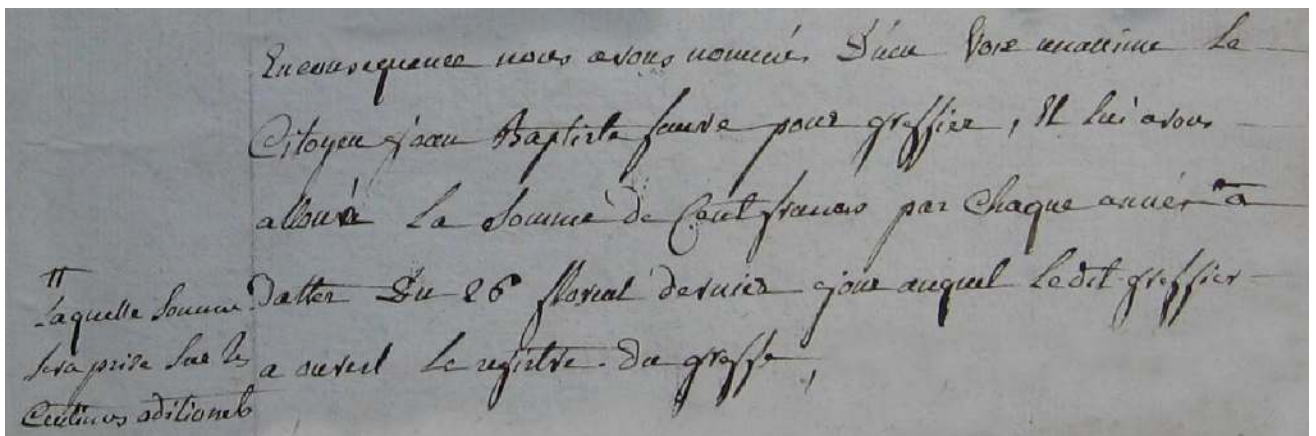 En consequence nous avons nommé D'une voix unanime Le
Citoyen jean Baptiste faure pour greffier, Et lui avons
alloué La Somme de Cent francs par Chaque année ╥ a
Datter Du 26 floreal dernier jour auquel Ledit greffier
a ouvert Le registre Du greffe
╥
Laquelle Somme
sera prise sur les
Centimes aditionels